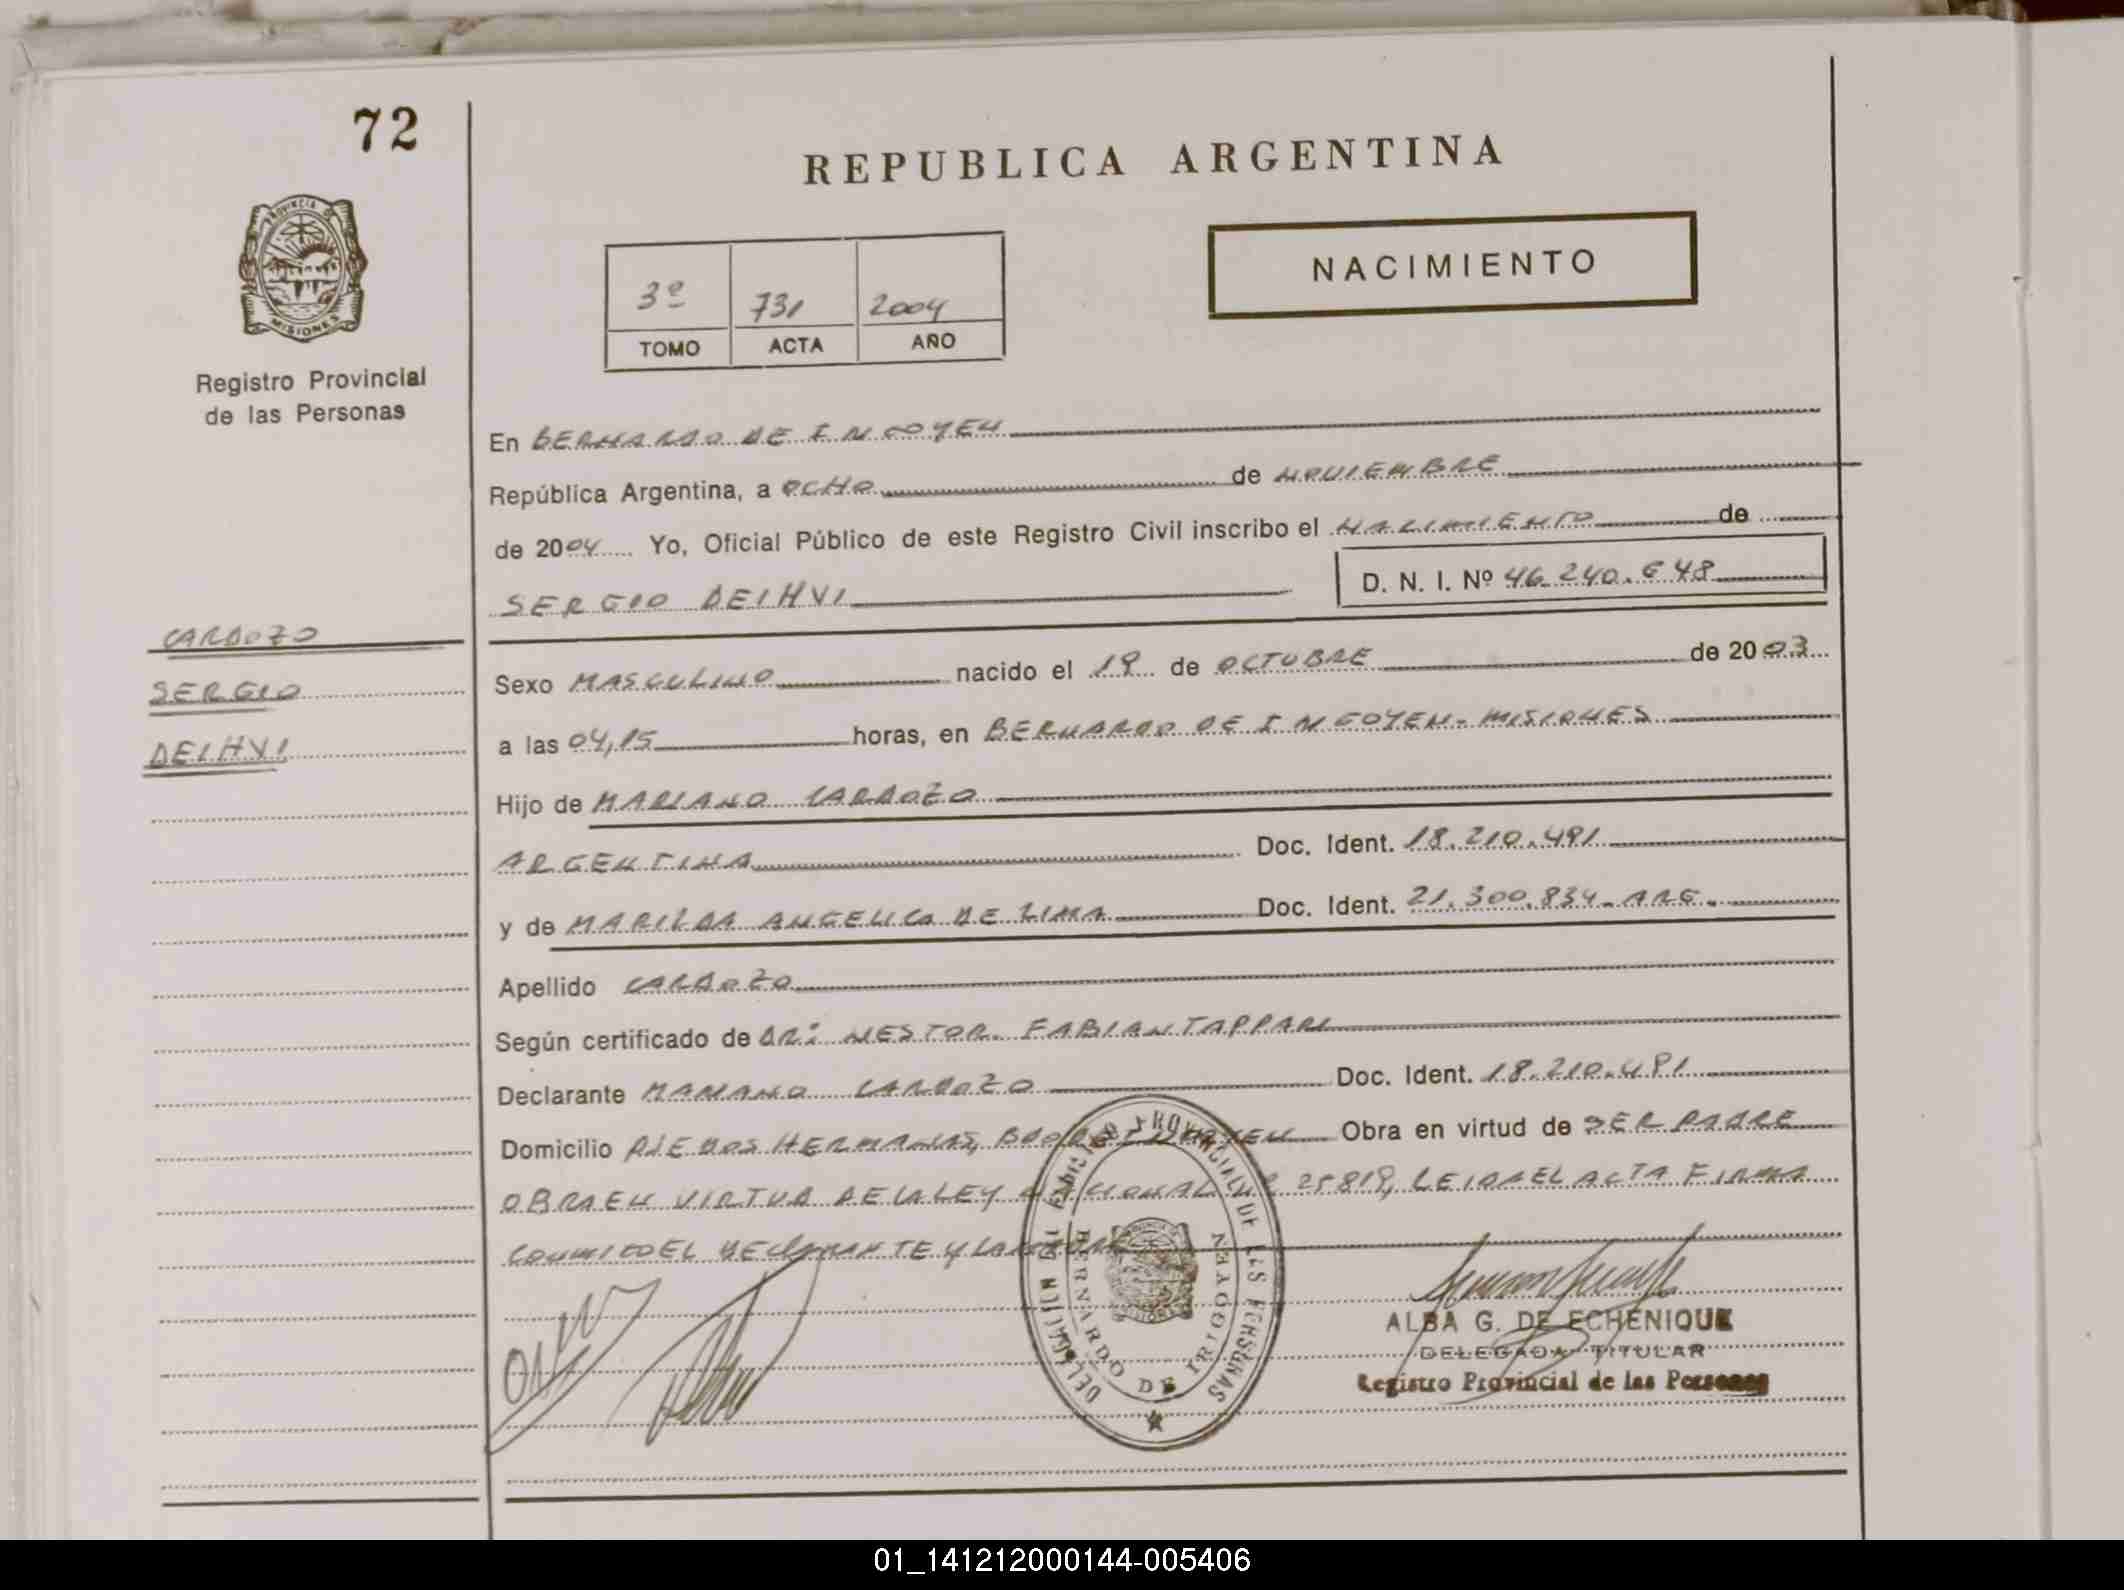 72
REPUBLICA ARGENTINA
PROVINCIA DE
MISIONES
Registro Provincial
de las Personas
NACIMIENTO
3º 731 2004
TOMO ACTA AÑO
En BERNARDO DE IRIGOYEN
República Argentina, a OCHO de NOVIEMBRE
de 2004 Yo, Oficial Público de este Registro Civil inscribo el NACIMIENTO de
SERGIO DEIHVI D. N. I. Nº 46.240.648
CARDOZO
SERGIO
DEIHVI
Sexo MASCULINO nacido el 19 de OCTUBRE de 2003
a las 04,15 horas, en BERNARDO DE IRIGOYEN - MISIONES
Hijo de MARIANO CARDOZO
ARGENTINA Doc. Ident. 18.210.491
y de MARILDA ANGELICA DE LIMA Doc. Ident. 21.300.834 - ARG.
Apellido CARDOZO
Según certificado de DR: NESTOR FABIAN TAPPARI
Declarante MARIANO CARDOZO Doc. Ident. 18.210.491
Domicilio PJE DOS HERMANAS, BDO DE IRIGOYEN Obra en virtud de SER PADRE
OBRA EN VIRTUD DE LA LEY NACIONAL NR 25819, LEIDA EL ACTA FIRMA
CONMIGO EL DECLARANTE Y LA MADRE
DELEGACION DEL REGISTRO PROVINCIAL DE LAS PERSONAS
BERNARDO DE IRIGOYEN
ALBA G. DE ECHENIQUE
DELEGADA TITULAR
Registro Provincial de las Personas
01_141212000144-005406